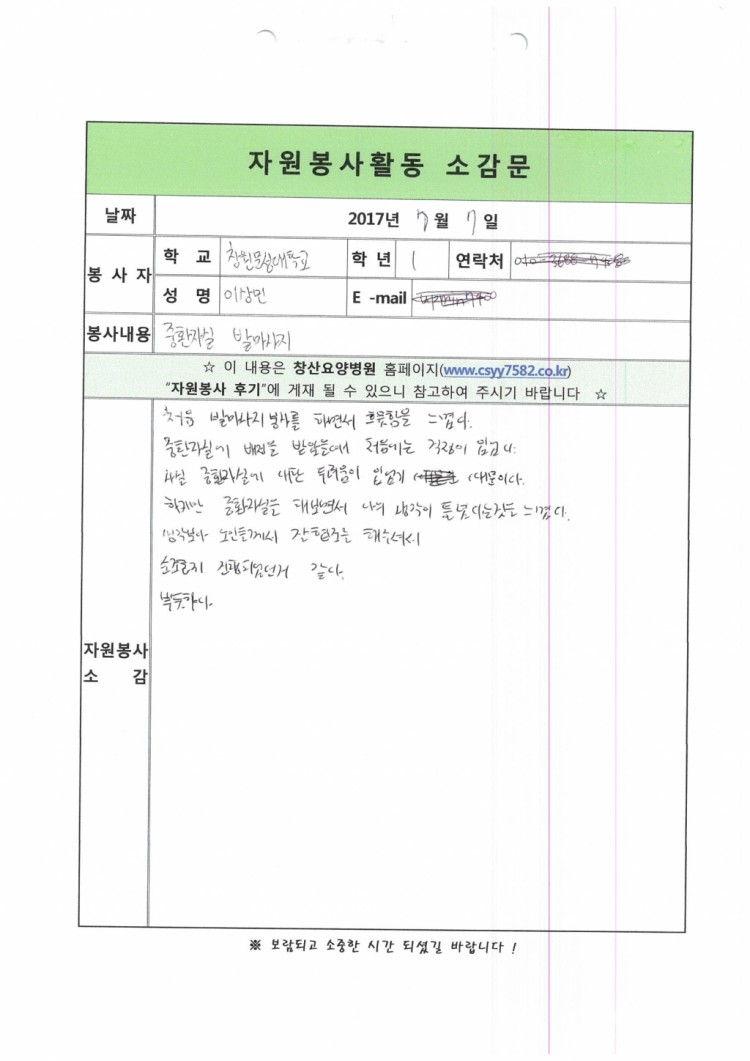 자원봉사활동 소감문
날짜 2017년 7월 7일
봉사자 학교 창원문성대학교 학년 1 연락처
성명 이상민 E-mail
봉사내용 중환자실 발마사지
☆ 이 내용은 창산요양병원 홈페이지(www.csyy7582.co.kr)
"자원봉사 후기"에 게재 될 수 있으니 참고하여 주시기 바랍니다 ☆
자원봉사 소감
처음 발마사지 봉사를 하면서 흐뭇함을 느꼈다.
중환자실에 배정을 받았을때 처음에는 걱정이 있었다.
사실 중환자실에 대한 두려움이 있었기 때문이다.
하지만 중환자실을 해보면서 나의 생각이 틀렸다는것을 느꼈다.
생각보다 노인분께서 잘 협조를 해주셔서
순조롭지 진행되었던거 같다.
뿌듯하다.
※ 보람되고 소중한 시간 되셨길 바랍니다 !